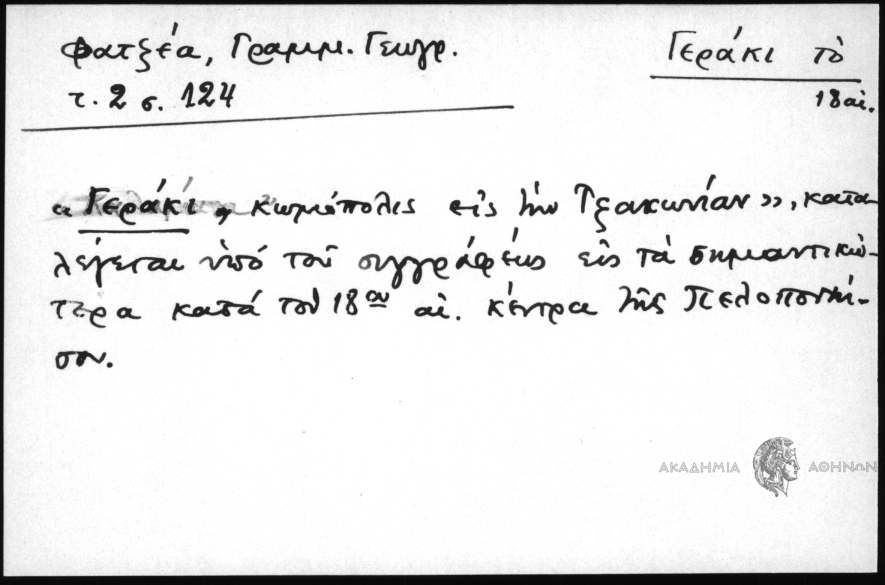 Φατζέα, Γραμμ. Γεωγρ.
τ. 2 σ. 124
Γεράκι τὸ
18 αἰ.
« Γεράκι, κωμόπολις εἰς τὴν Τζακωνίαν », κατα-
λέγεται ὑπό τοῦ συγγραφέως εἰς τὰ σημαντικώ-
τερα κατά τὸν 18ον αἰ. κέντρα τῆς Πελοποννή-
σου.
ΑΚΑΔΗΜΙΑ ΑΘΗΝΩΝ